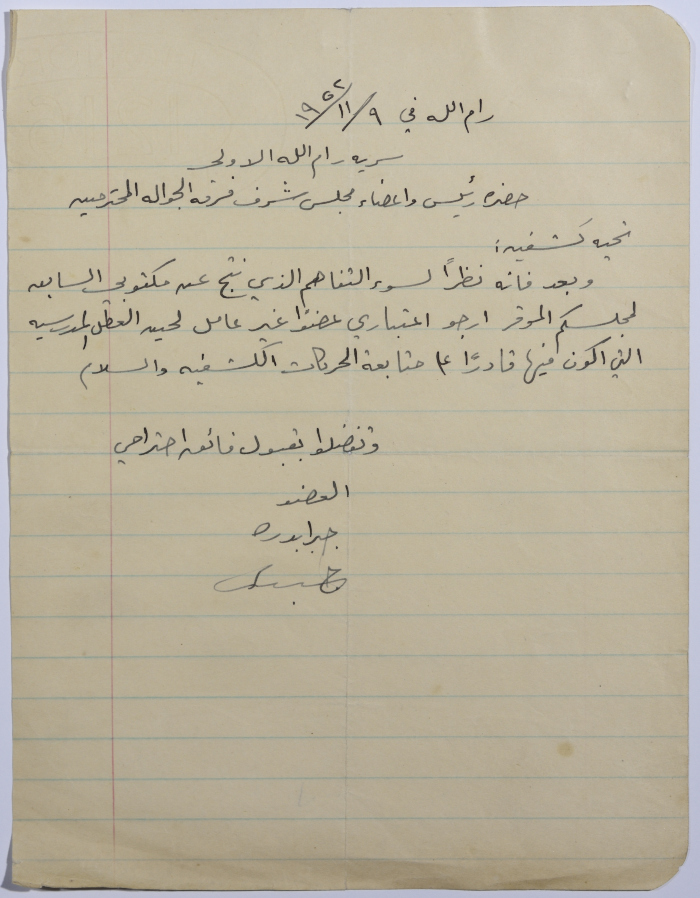 رام الله في ٩/١١/١٩٥٢
سرية رام الله الاولى
حضرة رئيس واعضاء مجلس شرف فرقة الجوالة المحترمين
تحية كشفية؛
وبعد فانه نظراً لسوء التفاهم الذي نتج عن مكتوبي السابق
لمجلسكم الموقر ارجو اعتباري عضواً غير عامل لحين العطل المدرسية
التي اكون فيها قادراً على متابعة الحركات الكشفية والسلام
وتفضلوا بقبول فائق احترامي
العضو
جبرا بدره